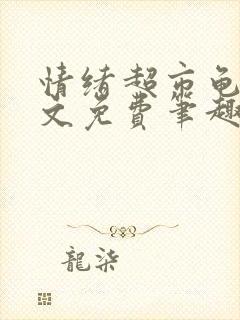 情绪超市龟
文免费笔趣
龍柒